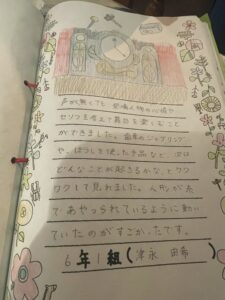 声が無くても登場人物の心情や
セリフを考えて舞台を楽しむこと
ができました。曲車のジャグリング
や、ぼうしを使った手品など、次は
どんなことが起きるかな、とワク
ワクして見れました。人形が糸
であやつられているように動い
ていたのがすごかったです。
6年1組(津永 由希)